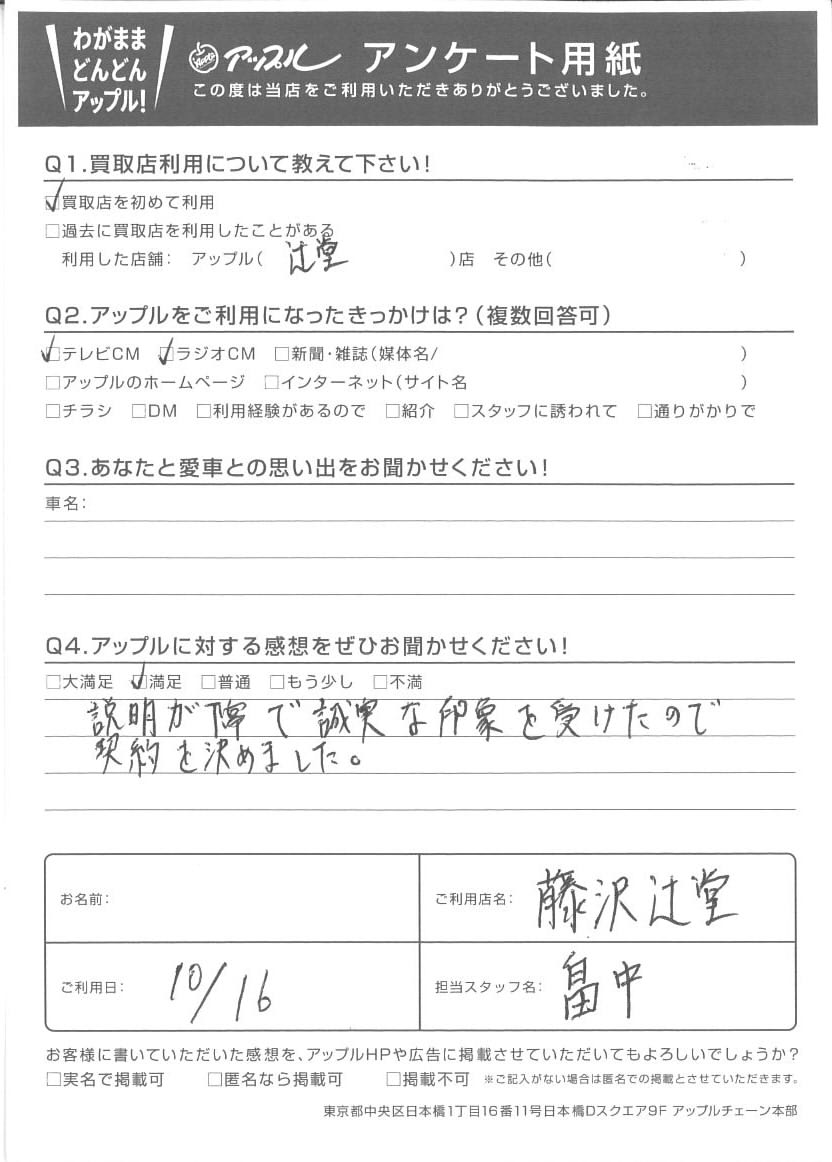 わがまま
どんどん
アップル!
Apple アップル アンケート用紙
この度は当店をご利用いただきありがとうございました。
Q1.買取店利用について教えて下さい!
☑買取店を初めて利用
□過去に買取店を利用したことがある
利用した店舗: アップル( 辻堂 )店 その他( )
Q2.アップルをご利用になったきっかけは?(複数回答可)
☑テレビCM ☑ラジオCM □新聞・雑誌(媒体名/ )
□アップルのホームページ □インターネット(サイト名 )
□チラシ □DM □利用経験があるので □紹介 □スタッフに誘われて □通りがかりで
Q3.あなたと愛車との思い出をお聞かせください!
車名:
Q4.アップルに対する感想をぜひお聞かせください!
□大満足 ☑満足 □普通 □もう少し □不満
説明が で誠実な印象を受けたので
契約を決めました。
お名前:
ご利用店名: 藤沢辻堂
ご利用日: 10/16
担当スタッフ名: 畠中
お客様に書いていただいた感想を、アップルHPや広告に掲載させていただいてもよろしいでしょうか?
□実名で掲載可 □匿名なら掲載可 □掲載不可 ※ご記入がない場合は匿名での掲載とさせていただきます。
東京都中央区日本橋1丁目16番11号日本橋Dスクエア9F アップルチェーン本部